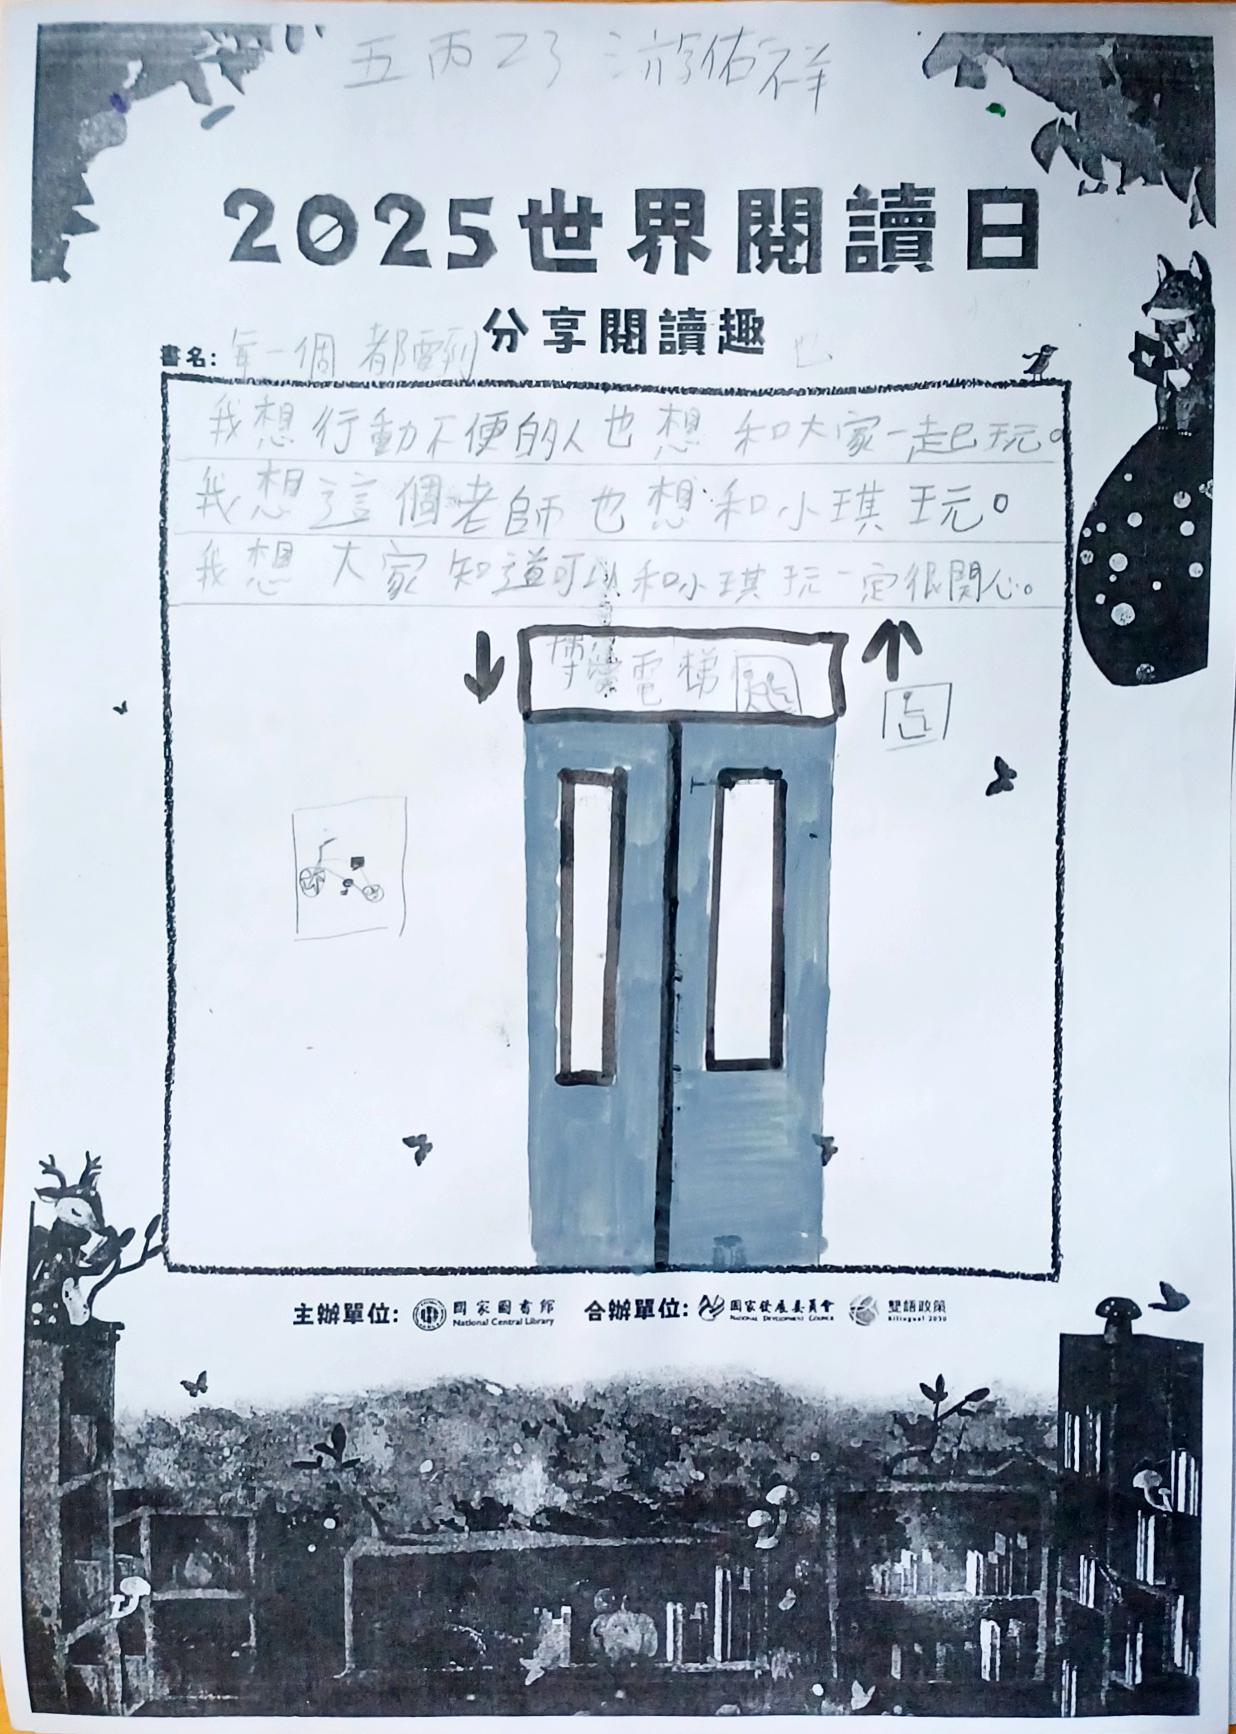 五丙23 游佑祥
2025世界閱讀日
分享閱讀趣
書名: 每一個 都要到
也
我想行動不便的人也想和大家一起玩。
我想這個老師也想和小琪玩。
我想大家知道可以和小琪玩一定很開心。
電梯
主辦單位: 國家圖書館 National Central Library 合辦單位: 國家發展委員會 NATIONAL DEVELOPMENT COUNCIL 雙語政策 Bilingual 2030